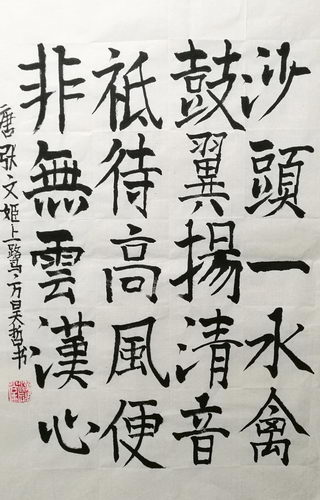 沙頭一水禽
鼓翼揚清音
祗待高風便
非無雲漢心
唐張文姬上鷺方昊哲书